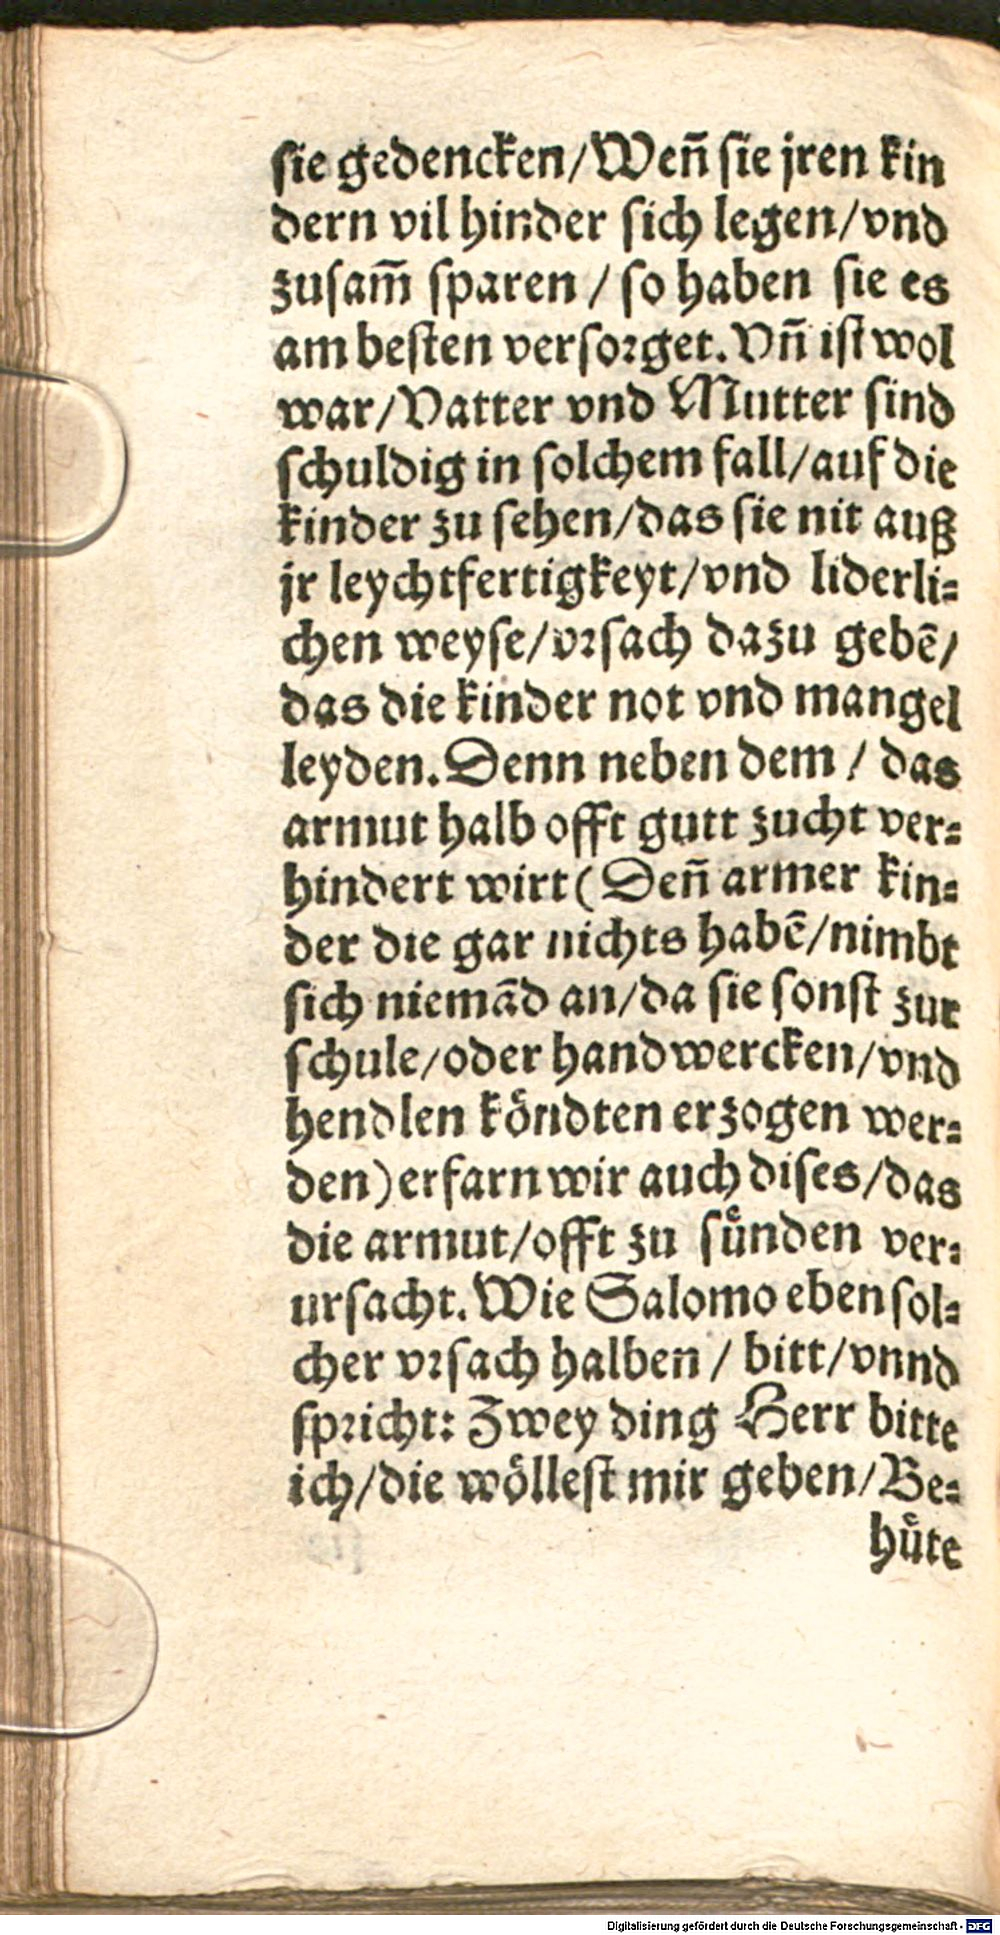 sie gedencken/Weñ sie jren kin
dern vil hinder sich legen/vnd
zusam̃ sparen / so haben sie es
am besten versorget. Vñ ist wol
war/Vatter vnd Mutter sind
schuldig in solchem fall/auf die
kinder zu sehen/das sie nit auß
jr leychtfertigkeyt/vnd liderli=
chen weyse/vrsach dazu gebẽ/
das die kinder not vnd mangel
leyden. Denn neben dem / das
armut halb offt gutt zucht ver=
hindert wirt (Deñ armer kin=
der die gar nichts habẽ/nimbt
sich niemãd an/da sie sonst zur
schule/oder handwercken/vnd
hendlen koͤndten erzogen wer=
den) erfarn wir auch dises/das
die armut/offt zu suͤnden ver=
ursacht. Wie Salomo eben sol=
cher vrsach halben / bitt/vnnd
spricht: Zwey ding Herr bitte
ich/die woͤllest mir geben/Be=
huͤte
Digitalisierung gefördert durch die Deutsche Forschungsgemeinschaft - DFG